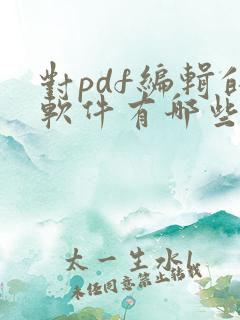 對pdf編輯的
軟件有哪些
太一生水l
未任同意禁止轉載